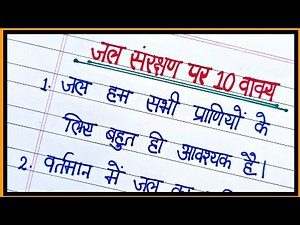 जल संरक्षण पर 10 वाक्य
1. जल हम सभी प्राणियों के
लिए बहुत ही आवश्यक है।
2. वर्तमान में जल का